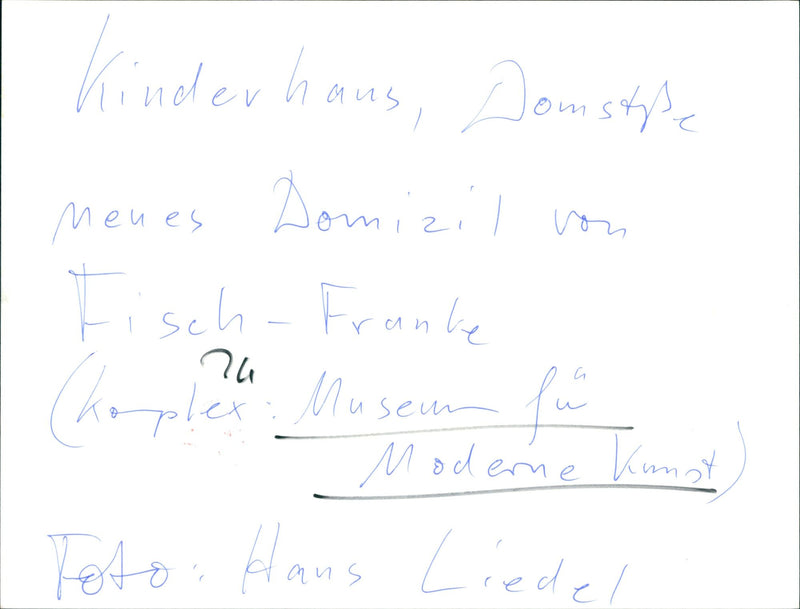 Kinderhaus, Domstße
neues Domizil von
Fisch-Franke
(Komplex: Museum fü
Moderne Kunst)
Foto: Hans Liedel